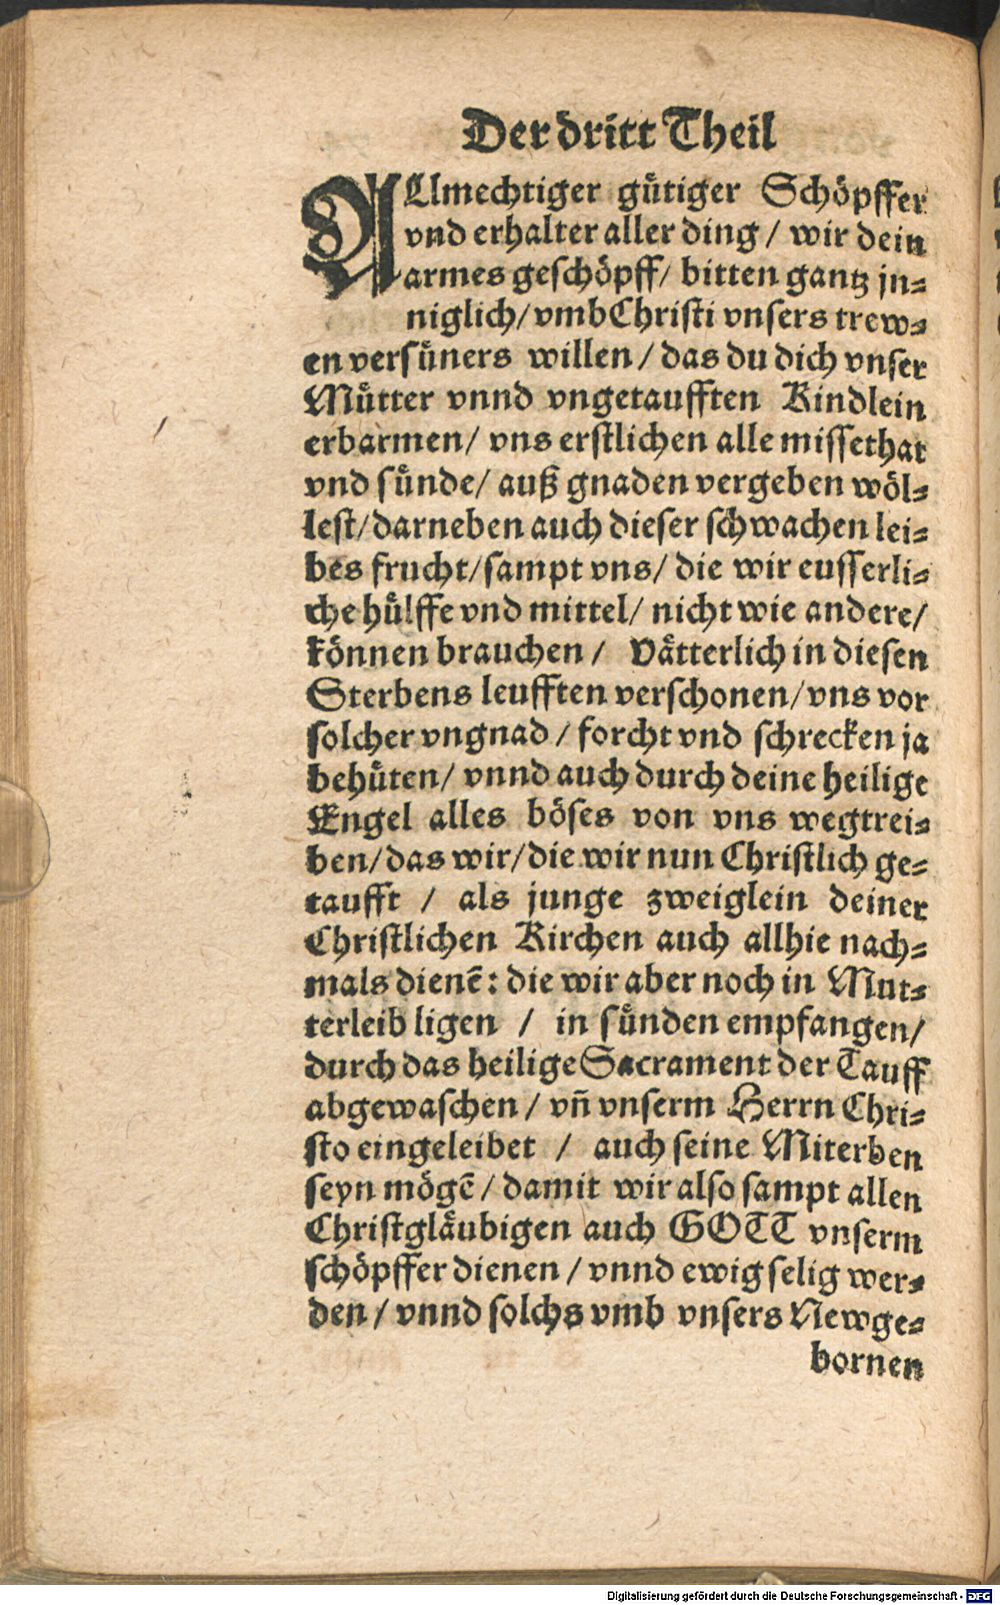 Der dritt Theil
ALlmechtiger gütiger Schöpffer
vnd erhalter aller ding / wir dein
armes geschöpff / bitten gantz in⸗
niglich / vmb Christi vnsers trew⸗
en versüners willen / das du dich vnser
Mütter vnnd vngetaufften Kindlein
erbarmen / vns erstlichen alle missethat
vnd sünde / auß gnaden vergeben wöl⸗
lest / darneben auch dieser schwachen lei⸗
bes frucht / sampt vns / die wir eusserli⸗
che hülffe vnd mittel / nicht wie andere /
können brauchen / Vätterlich in diesen
Sterbens leufften verschonen / vns vor
solcher vngnad / forcht vnd schrecken ja
behüten / vnnd auch durch deine heilige
Engel alles böses von vns wegtrei⸗
ben / das wir / die wir nun Christlich ge⸗
taufft / als junge zweiglein deiner
Christlichen Kirchen auch allhie nach⸗
mals dienē: die wir aber noch in Mut⸗
terleib ligen / in sünden empfangen /
durch das heilige Sacrament der Tauff
abgewaschen / vñ vnserm Herrn Chri⸗
sto eingeleibet / auch seine Miterben
seyn mögē / damit wir also sampt allen
Christgläubigen auch GOTT vnserm
schöpffer dienen / vnnd ewig selig wer⸗
den / vnnd solchs vmb vnsers Newge⸗
bornen
Digitalisierung gefördert durch die Deutsche Forschungsgemeinschaft - DFG